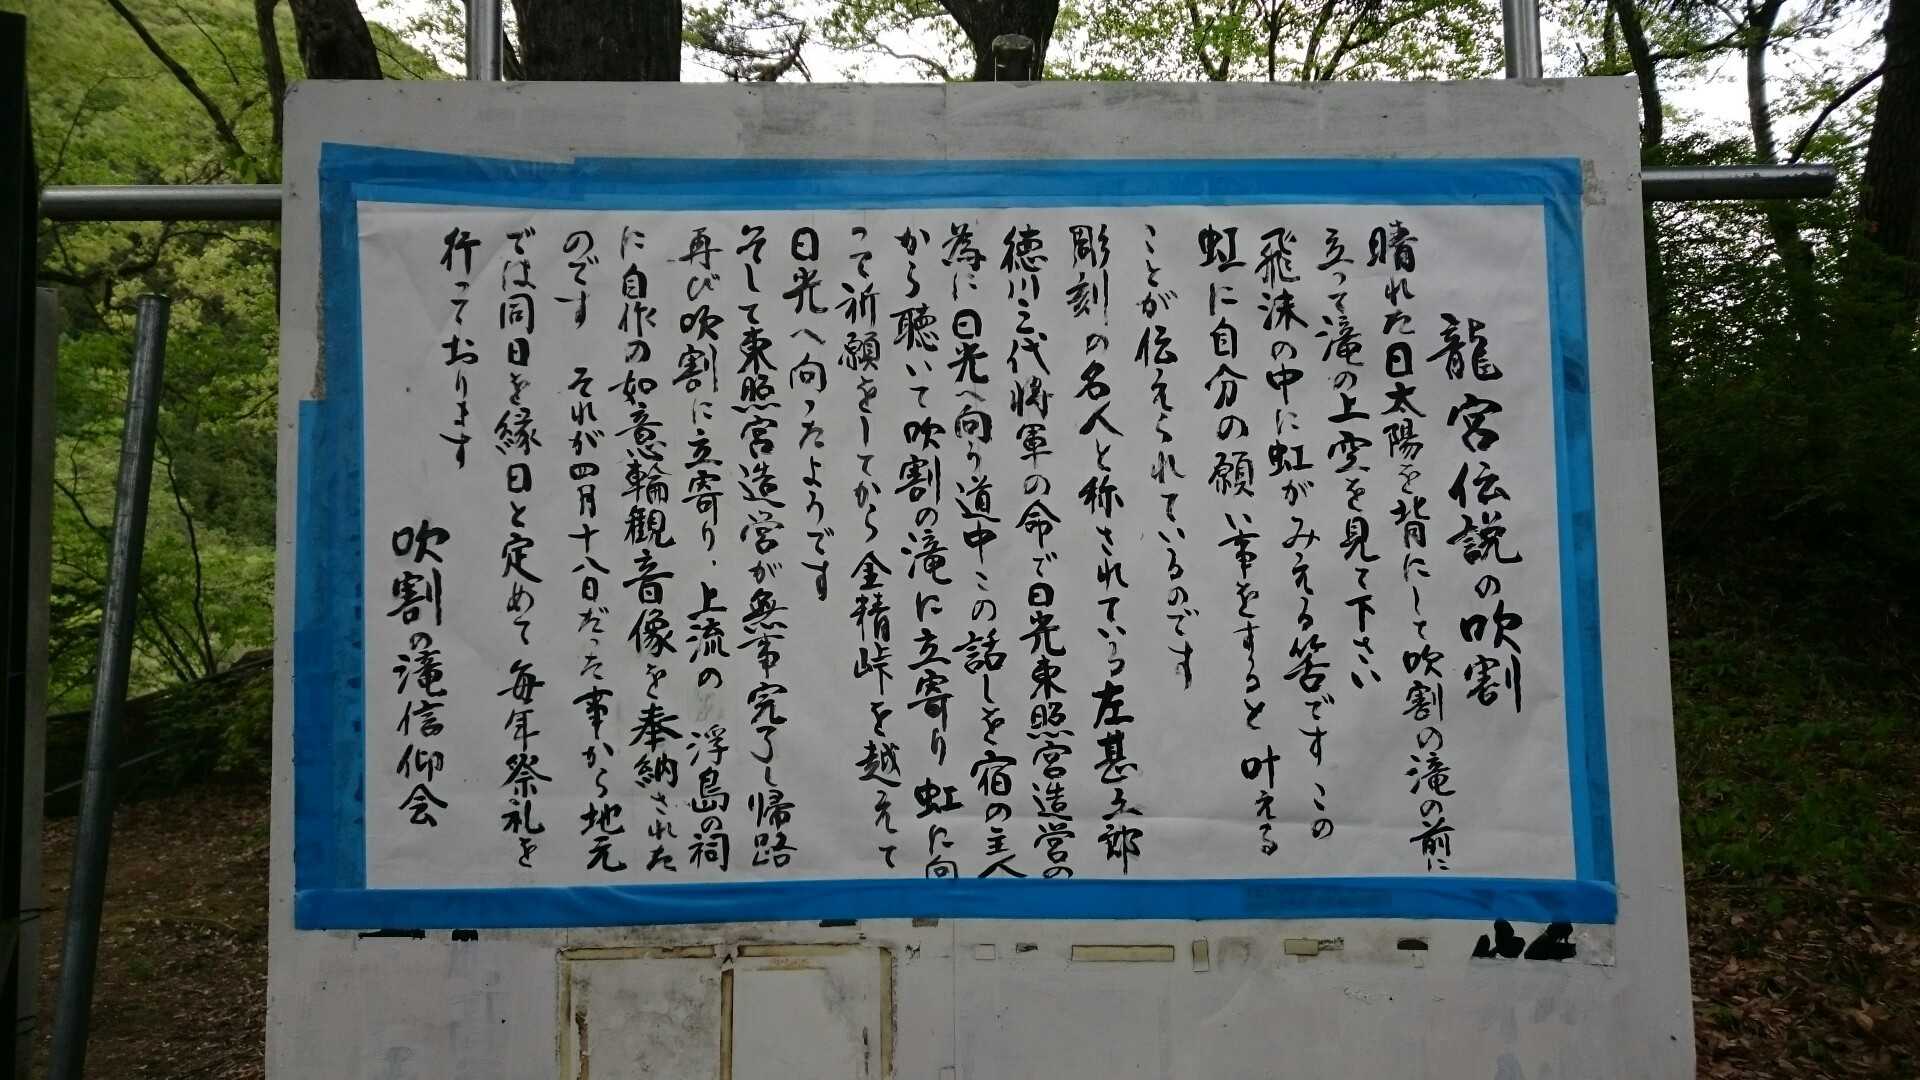 龍宮伝説の吹割
晴れた日太陽を背にして吹割の滝の前に
立って滝の上空を見て下さい
飛沫の中に虹がみえる筈です この
虹に自分の願い事をすると 叶える
ことが伝えられているのです
彫刻の名人と称されている左甚五郎
徳川三代将軍の命で日光東照宮造営の
為に日光へ向う道中この話しを宿の主人
から聴いて吹割の滝に立寄り虹に向
って祈願をしてから金精峠を越えて
日光へ向ったようです
そして東照宮造営が無事完了し帰路
再び吹割に立寄り、上流の 浮島の祠
に自作の如意輪観音像を奉納された
のです それが四月十八日だった事から地元
では同日を縁日と定めて毎年祭礼を
行っております
吹割の滝信仰会